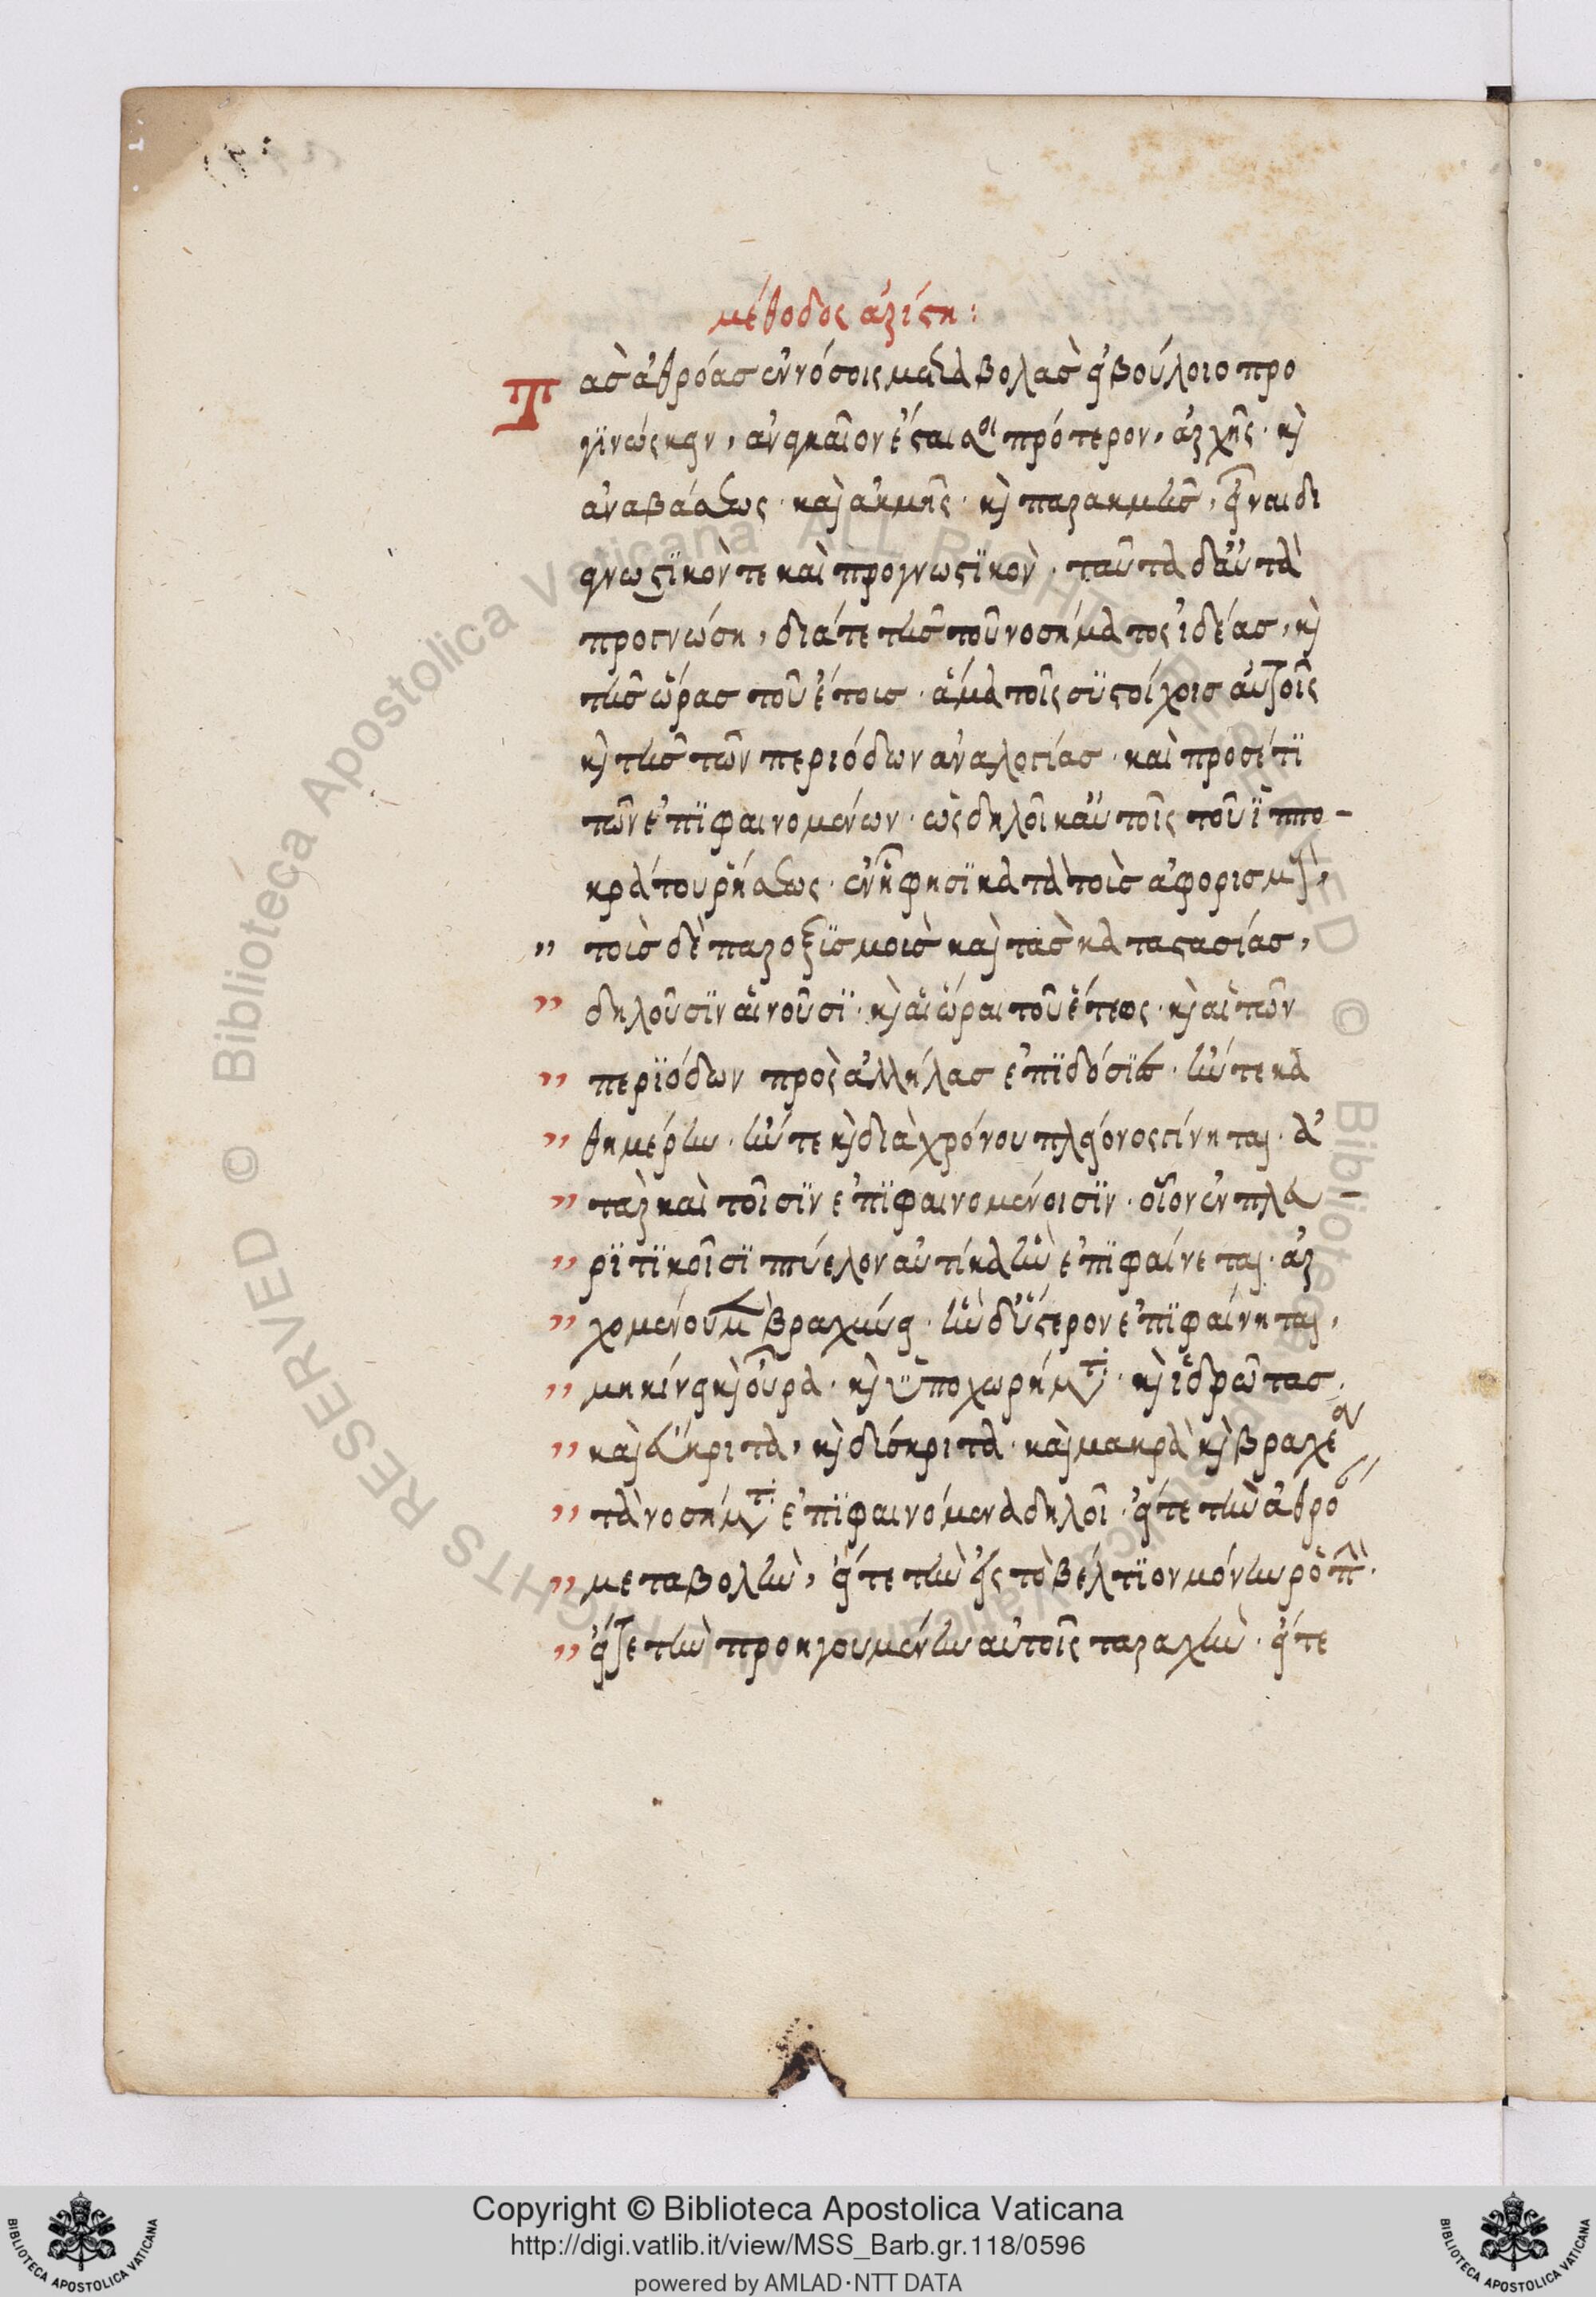 μέθοδος ἀρίστη:
Τὰσ ἀθρόασ ἐν νόσοις μεταβολὰσ εἰ βούλοιο προ
γϊνώσκειν, ἀναγκαῖον ἔσται σοι πρότερον, ἀρχῆς· κὴ
ἀναβάσεως· καὶ ἀκμῆς· κὴ παρακμῆσ, εἶναι δι
γνωστϊκόν τε καὶ προγνωστϊκὸν· ταῦτα δ' αὖ τὰ
προγνώση, διά τε τῆσ τοῦ νοσήματος ἰδέασ, κὴ
τῆσ ὥρασ τοῦ ἔτουσ· ἅμα τοῖς σϋστοίχοισ αὐτοῖς
κὴ τῆσ τῶν περιόδων ἀναλογίασ· καὶ προσέτϊ
τῶν ἐπϊφαινομένων· ὡς δηλοῖ κἀν τοῖς τοῦ ἳππο-
κράτου ῥήσεως· ἐν ᾗ φησϊ κατὰ τοὺσ ἀφορισμοὺσ,
„ τοὺσ δὲ παροξϊσμοὺσ καὶ τὰσ καταστασίασ,
„ δηλοῦσϊν αἱ νοῦσϊ· κὴ αἱ ὧραι τοῦ ἔτεος· κὴ αἱ τῶν
„ περϊόδων πρὸς ἀλλήλασ ἐπϊδόσϊεσ· ἤν τε κα
„ θημέρην· ἤν τε κὴ διὰ χρόνου πλείονος γίνηται· ἀ
„ ταρ καὶ τοῖσϊν ἐπϊφαινομένοισϊν· οἷον ἐν πλευ
„ ρϊτϊκοῖσϊ πτύελον αὐτίκα ἢν ἐπϊφαίνεται· ἀρ
„ χομένου μὲν βραχύνει· ἢν δ' ὕστερον ἐπϊφαίνηται,
„ μηκύνει κὴ οὖρα· κὴ ὑποχωρήματα· κὴ ἱδρῶτασ·
„ καὶ εὔκριτα, κὴ δύσκριτα· καὶ μακρὰ κὴ βραχέα
„ τὰ νοσήματα ἐπϊφαινόμενα δηλοῖ· εἴτε τὴν ἀθρό
„ μεταβολὴν, εἴτε τὴν εἰς τὸ βέλτϊον μόνην ῥοπὴν·
„ εἴτε τὴν προηγουμένην αὐτοῖς ταραχὴν· εἴτε
Copyright © Biblioteca Apostolica Vaticana
http://digi.vatlib.it/view/MSS_Barb.gr.118/0596
powered by AMLAD·NTT DATA